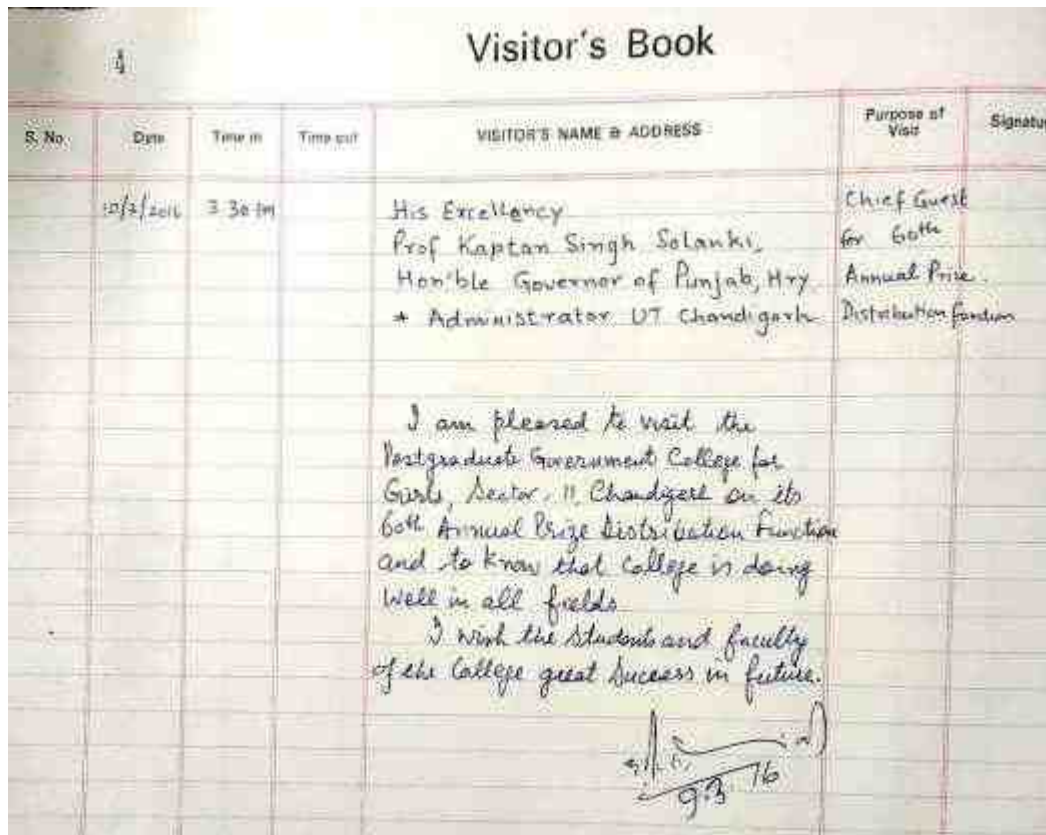 Visitor's Book
S. No. Date Time in Time out VISITOR'S NAME & ADDRESS Purpose of Visit Signatur
10/2/2016 3 30 PM
His Excellency
Prof Kaptan Singh Solanki,
Hon'ble Governor of Punjab, Hry
+ Administrator UT Chandigarh
Chief Guest
for 60th
Annual Prize.
Distribution function
I am pleased to visit the
Postgraduate Government College for
Girls, Sector, 11, Chandigarh on its
60th Annual Prize Distribution Function
and to know that College is doing
well in all fields
I wish the Students and faculty
of the College great Success in future.
9.3 16